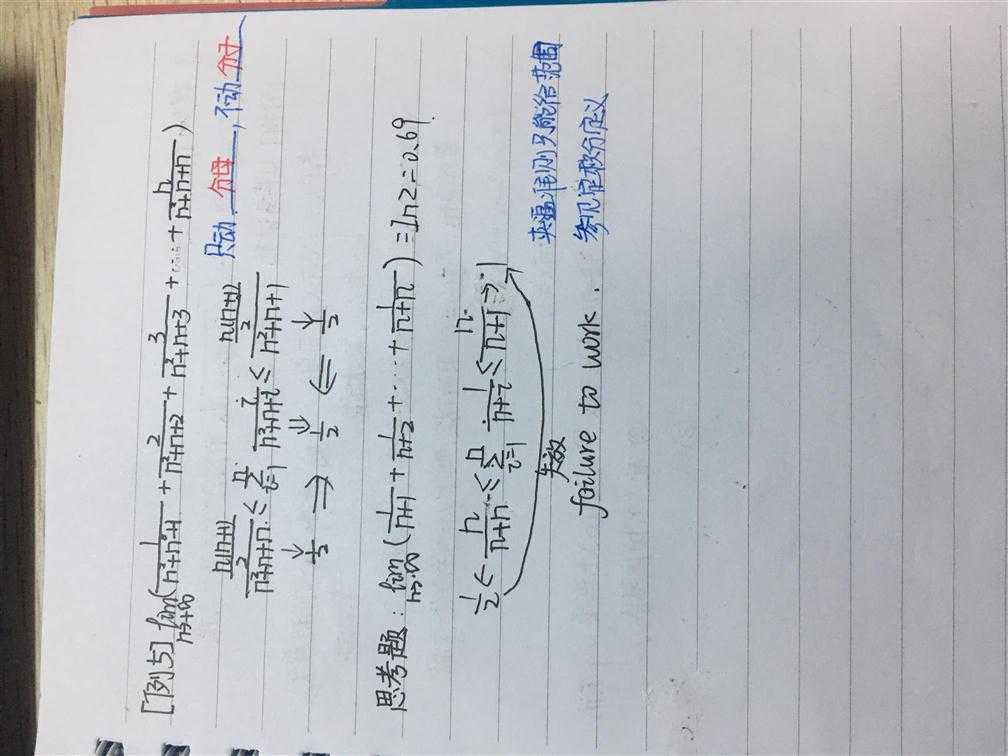 [例5] lim n→+∞ (1/(n²+n+1) + 2/(n²+n+2) + 3/(n²+n+3) + ⋯ + n/(n²+n+n))
只动 分母, 不动分子
(n(n+1)/2)/(n²+n+n) ≤ Σ i=1 n i/(n²+n+i) ≤ (n(n+1)/2)/(n²+n+1)
↓ 1/2 ⇒ ⇓ 1/2 ⇐ ↓ 1/2
思考题: lim n→∞ (1/(n+1) + 1/(n+2) + ⋯ + 1/(n+n)) = ln2 = 0.69
1/2 ← n/(n+n) ≤ Σ i=1 n 1/(n+i) ≤ n/(n+1) → 1
失效
failure to work.
夹逼准则只能给范围
参见定积分定义